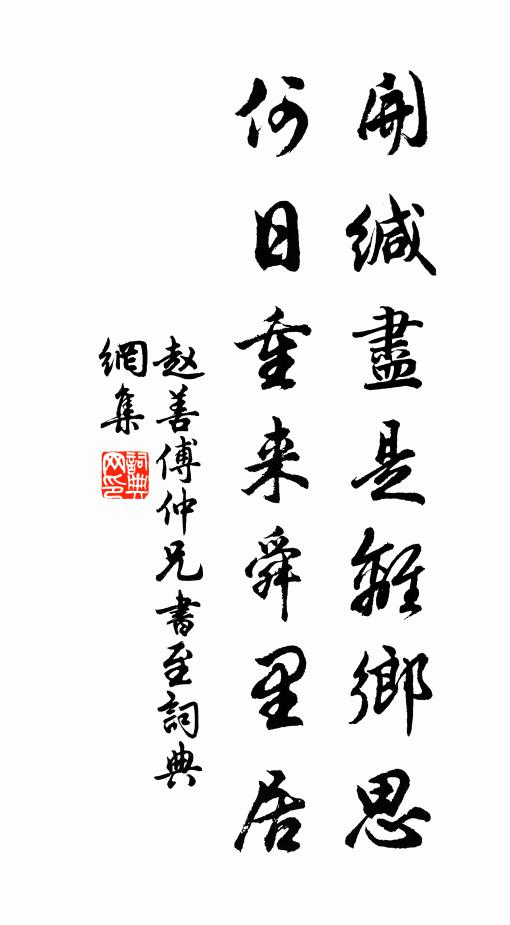 開緘盡是離鄉思
何日重来舜里居
赵善傅仲兄書至詞典
網集
詞典
网印